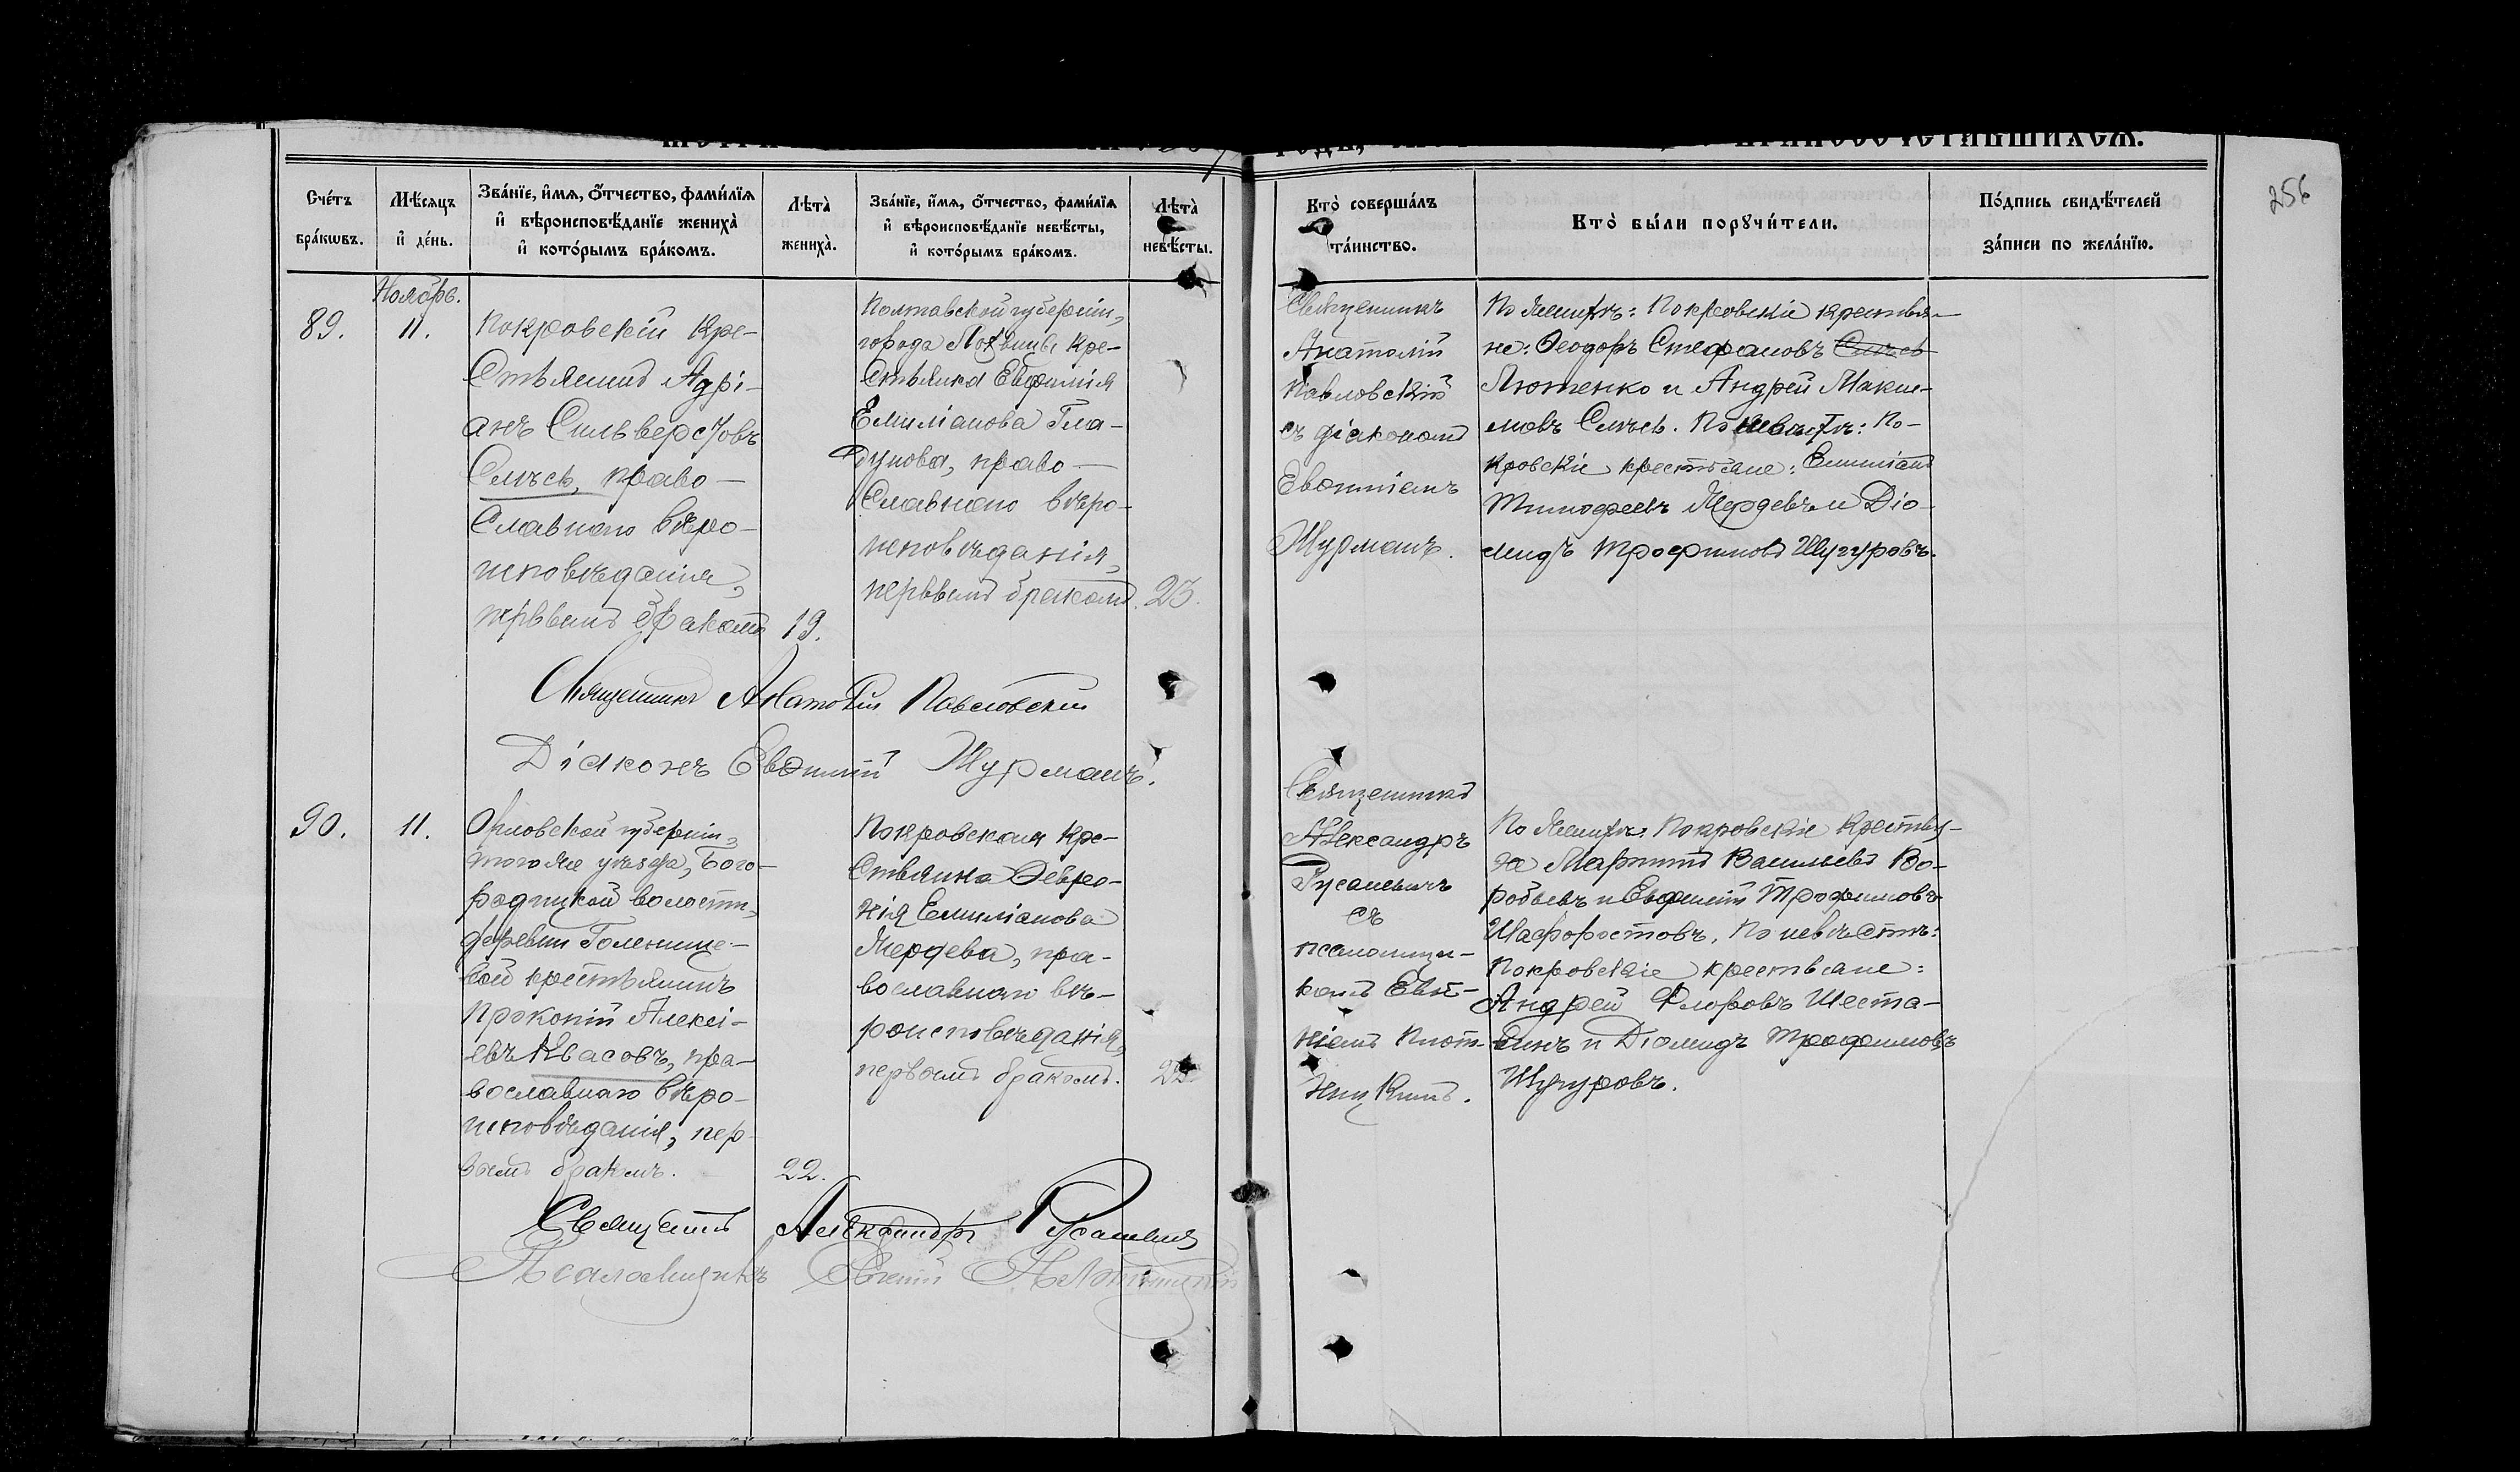 256
Сче́тъ бра́ковъ.
Мѣ́сяцъ и҆ де́нь.
Зва́нїе, и҆́мя, ѻ҆́тчество, фами́лїя
и҆ вѣроисповѣ́данїе жениха̀
и҆ кото́рымъ бра́комъ.
Лѣта̀ жениха̀.
Зва́нїе, и҆́мя, ѻ҆́тчество, фами́лїя
и҆ вѣроисповѣ́данїе невѣ́сты,
и҆ кото́рымъ бра́комъ.
Лѣта̀ невѣ́сты.
Кто̀ соверша́лъ
та́инство.
Кто̀ бы́ли порꙋчи́тели.
По́дпись свидѣ́телей
за́писи по жела́нїю.
Ноябрь.
89.
11.
Покровскій кре-
стьянинъ Адрі-
анъ Сильверстовъ
Слѣсь, право-
славнаго вѣро-
исповѣданія,
первымъ бракомъ
19.
Полтавской губерніи,
города Лохвицы кре-
стьянка Евфимія
Емиліанова Гла-
дунова, право-
славнаго вѣро-
исповѣданія,
первымъ бракомъ.
23.
Священникъ
Анатолій
Павловскій
съ діакономъ
Евѳиміемъ
Шурманъ.
По женихѣ: Покровскіе крестья-
не: Ѳеодоръ Стефановъ Слѣсь
Лютенко и Андрей Макси-
мовъ Слѣсь. По невѣстѣ: По-
кровскіе крестьяне: Емиліанъ
Тимофеевъ Жердевъ и Діо-
мидъ Трофимовъ Шугуровъ.
Священникъ Анатолій Павловскій
Діаконъ Евѳимій Шурманъ.
90.
11.
Орловской губерніи,
того же уѣзда, Бого-
родицкой волости,
деревни Голенище-
вой крестьянинъ
Прокопій Алексі-
евъ Квасовъ, пра-
вославнаго вѣро-
исповѣданія, пер-
вымъ бракомъ.
22.
Покровская кре-
стьянка Февро-
нія Емиліанова
Жердева, пра-
вославнаго вѣ-
роисповѣданія,
первымъ бракомъ.
Священникъ
Александръ
Русаневичъ
съ
псаломщи-
комъ Евге-
ніемъ Плот-
ницкимъ.
По женихѣ: Покровскіе крестья-
не Мартинъ Васильевъ Во-
робьевъ и Евфимій Трофимовъ
Шафоростовъ. По невѣстѣ:
Покровскіе крестьяне:
Андрей Флоровъ Шеста-
винъ и Діомидъ Трофимовъ
Шугуровъ.
Священникъ Александръ
Псаломщикъ Евгеній Плотницкій